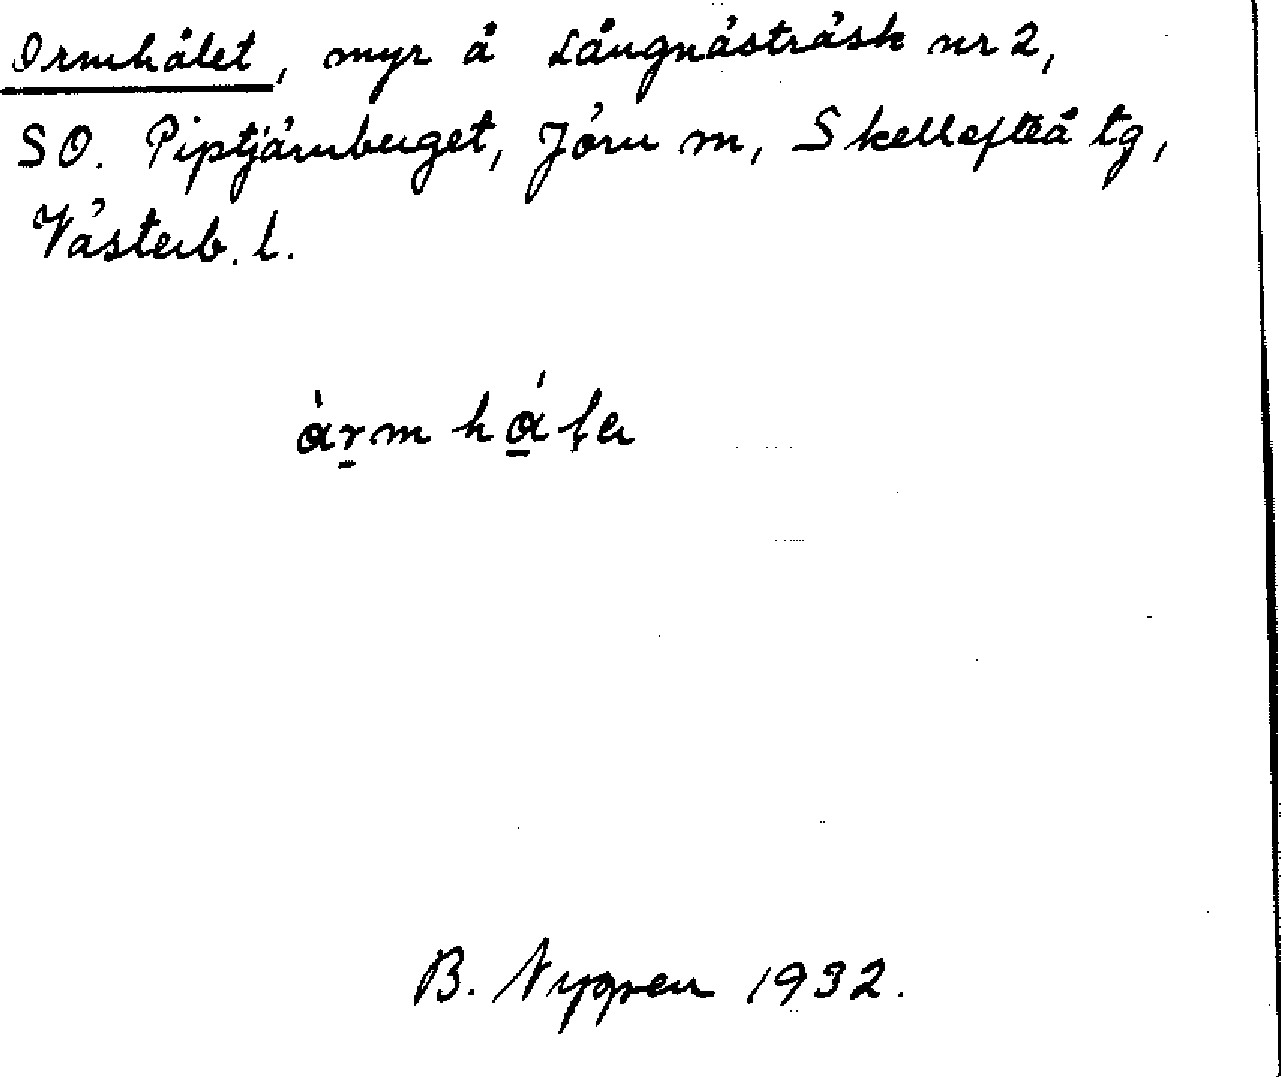 Ormhålet, myr å Långnästräsk nr 2,
SO. Piptjärnberget, Jörn m, Skellefteå tg,
Västerb. l.
B. Nygren 1932.